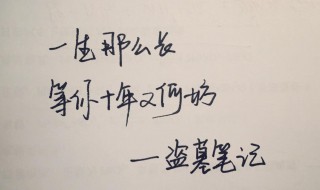 一生那么长
等你十年又何妨
—盗墓笔记